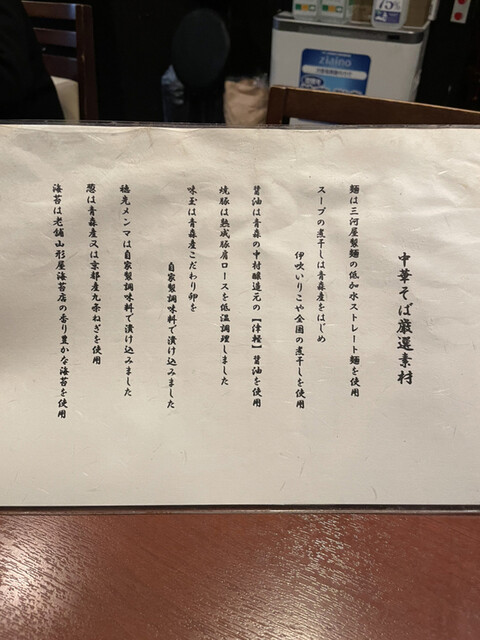 中華そば厳選素材
麺は三河屋製麺の低加水ストレート麺を使用
スープの煮干しは青森産をはじめ
伊吹いりこや全国の煮干しを使用
醤油は青森の中村醸造元の【津軽】醤油を使用
焼豚は熟成豚肩ロースを低温調理しました
味玉は青森産こだわり卵を
自家製調味料で漬け込みました
穂先メンマは自家製調味料で漬け込みました
葱は青森産又は京都産九条ねぎを使用
海苔は老舗山形屋海苔店の香り豊かな海苔を使用
ziaino
75%